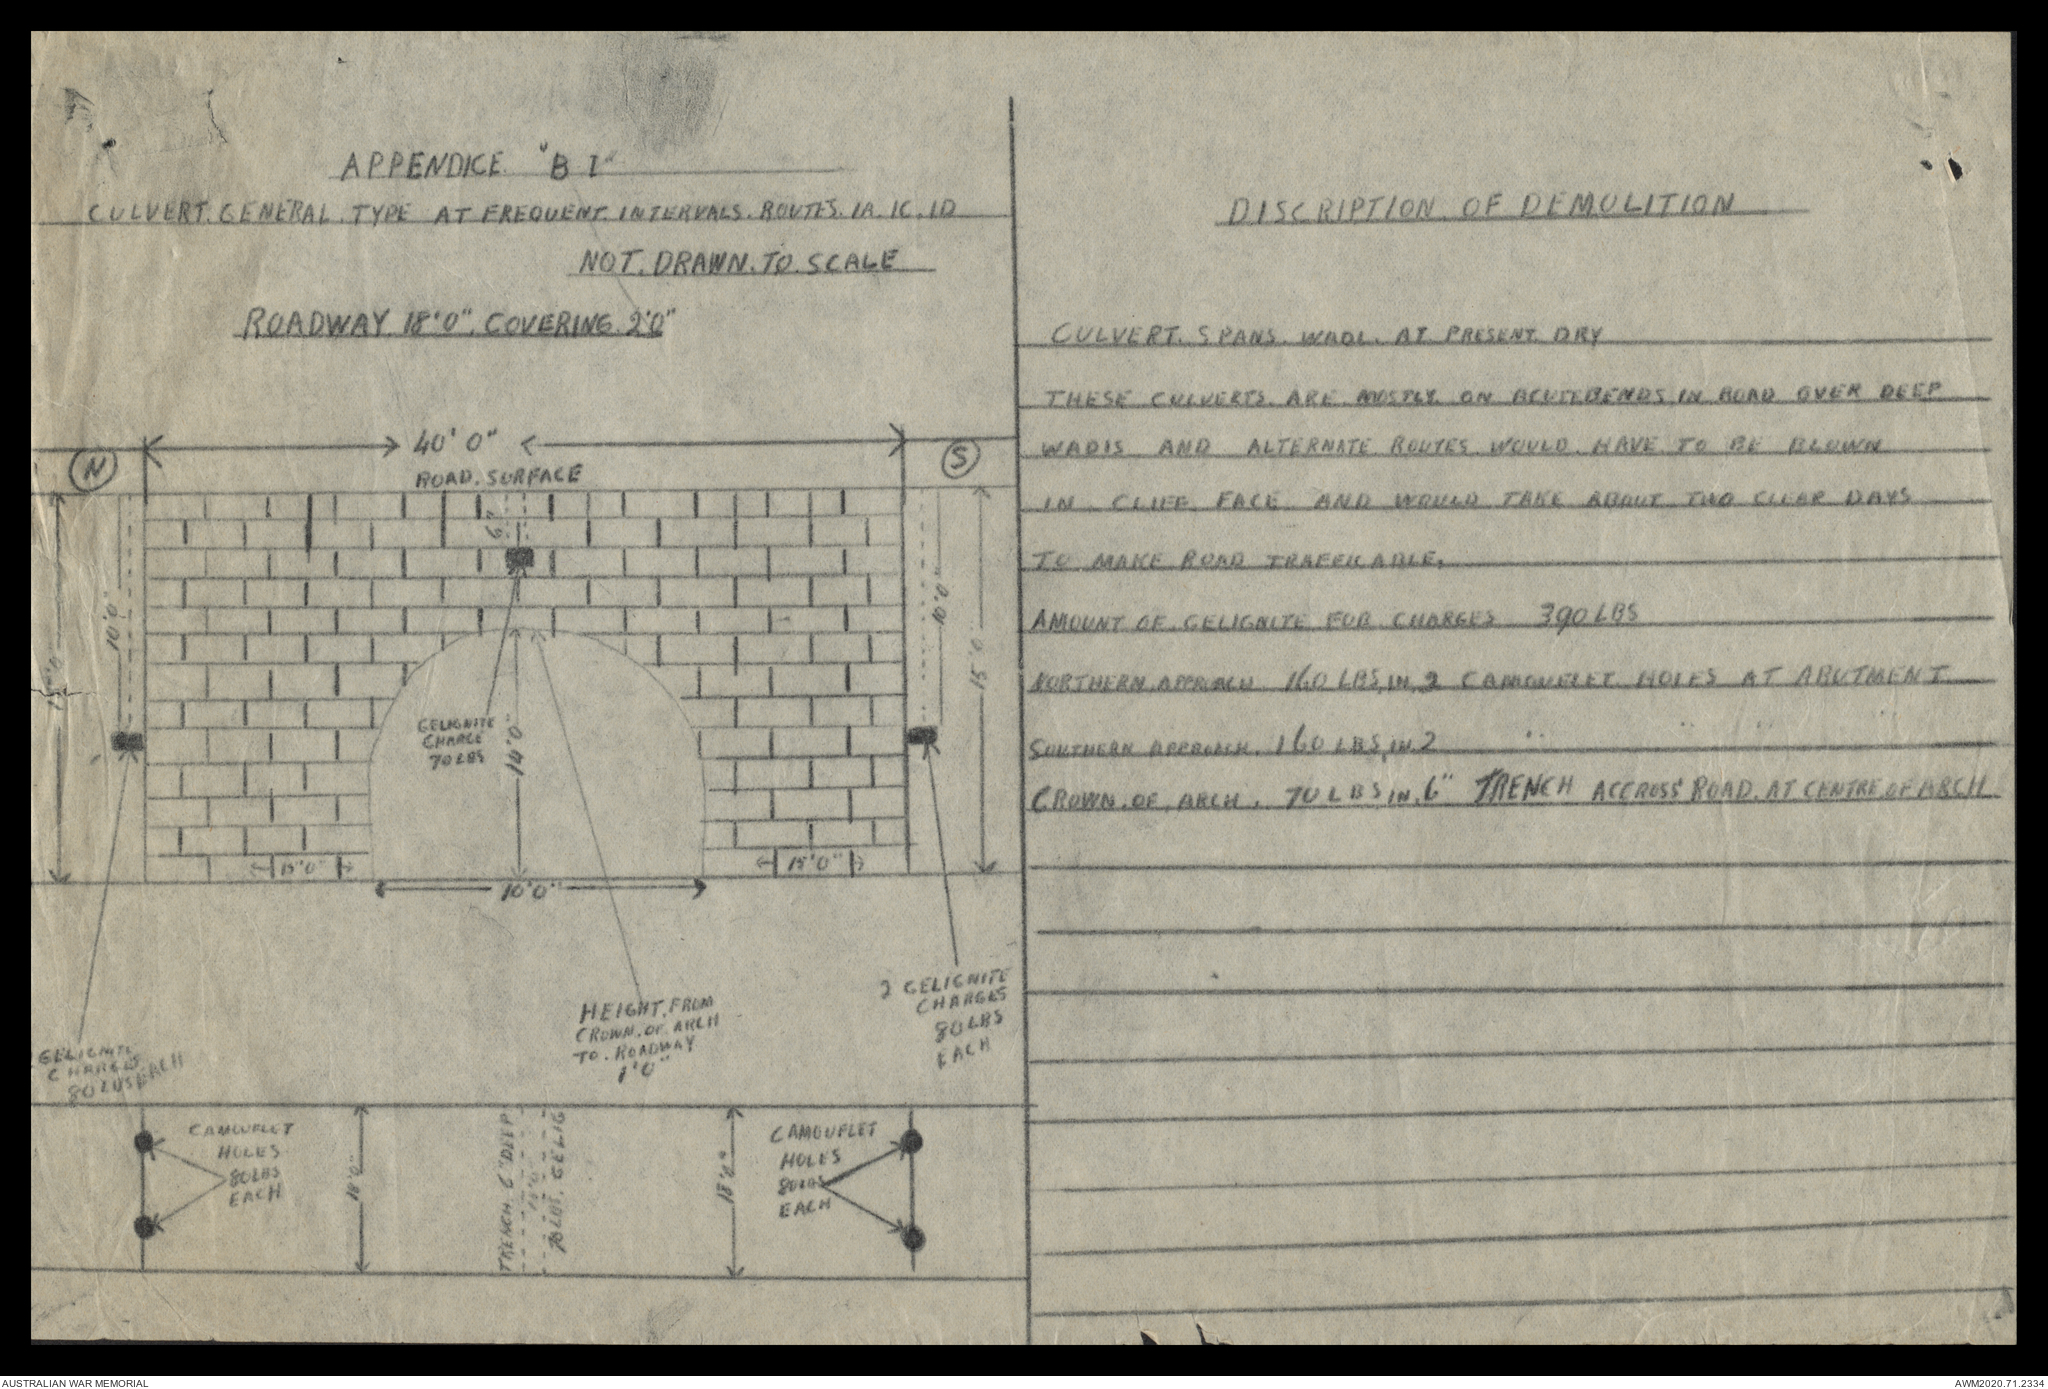 APPENDICE "B I"
CULVERT. GENERAL. TYPE AT FREQUENT. INTERVALS. ROUTES. 1A. 1C. 1D
NOT. DRAWN. TO. SCALE
ROADWAY. 18'0". COVERING. 2'0"
N
40' 0"
S
ROAD. SURFACE
6"
10'0"
10'0"
15'0"
GELIGNITE
CHARGE
70 LBS
10'0"
15'0"
15'0"
10'0"
HEIGHT. FROM
CROWN. OF. ARCH
TO. ROADWAY
1'0"
2 GELIGNITE
CHARGES
80 LBS
EACH
GELIGNITE
CHARGES
80 LBS EACH
CAMOUFLET
HOLES
80LBS
EACH
18'0"
TRENCH. 6" DEEP
18'0"
70 LBS. GELIG
18'0"
CAMOUFLET
HOLES
80LBS
EACH
DISCRIPTION. OF DEMOLITION
CULVERT. SPANS. WADI. AT PRESENT DRY
THESE CULVERTS. ARE. MOSTLY. ON ACUTEBENDS. IN ROAD OVER DEEP
WADIS AND ALTERNATE ROUTES WOULD. HAVE. TO BE BLOWN
IN CLIFF FACE AND WOULD TAKE ABOUT TWO CLEAR DAYS
TO MAKE ROAD TRAFFICABLE.
AMOUNT OF GELIGNITE FOR CHARGES 390 LBS
NORTHERN. APPROACH 160 LBS, IN. 2 CAMOUFLET HOLES AT ABUTMENT
SOUTHERN APPROACH. 160 LBS, IN 2 " " " "
CROWN. OF. ARCH. 70 LBS, IN. 6" TRENCH ACCROSS ROAD. AT CENTRE OF ARCH
AUSTRALIAN WAR MEMORIAL
AWM2020.71.2334